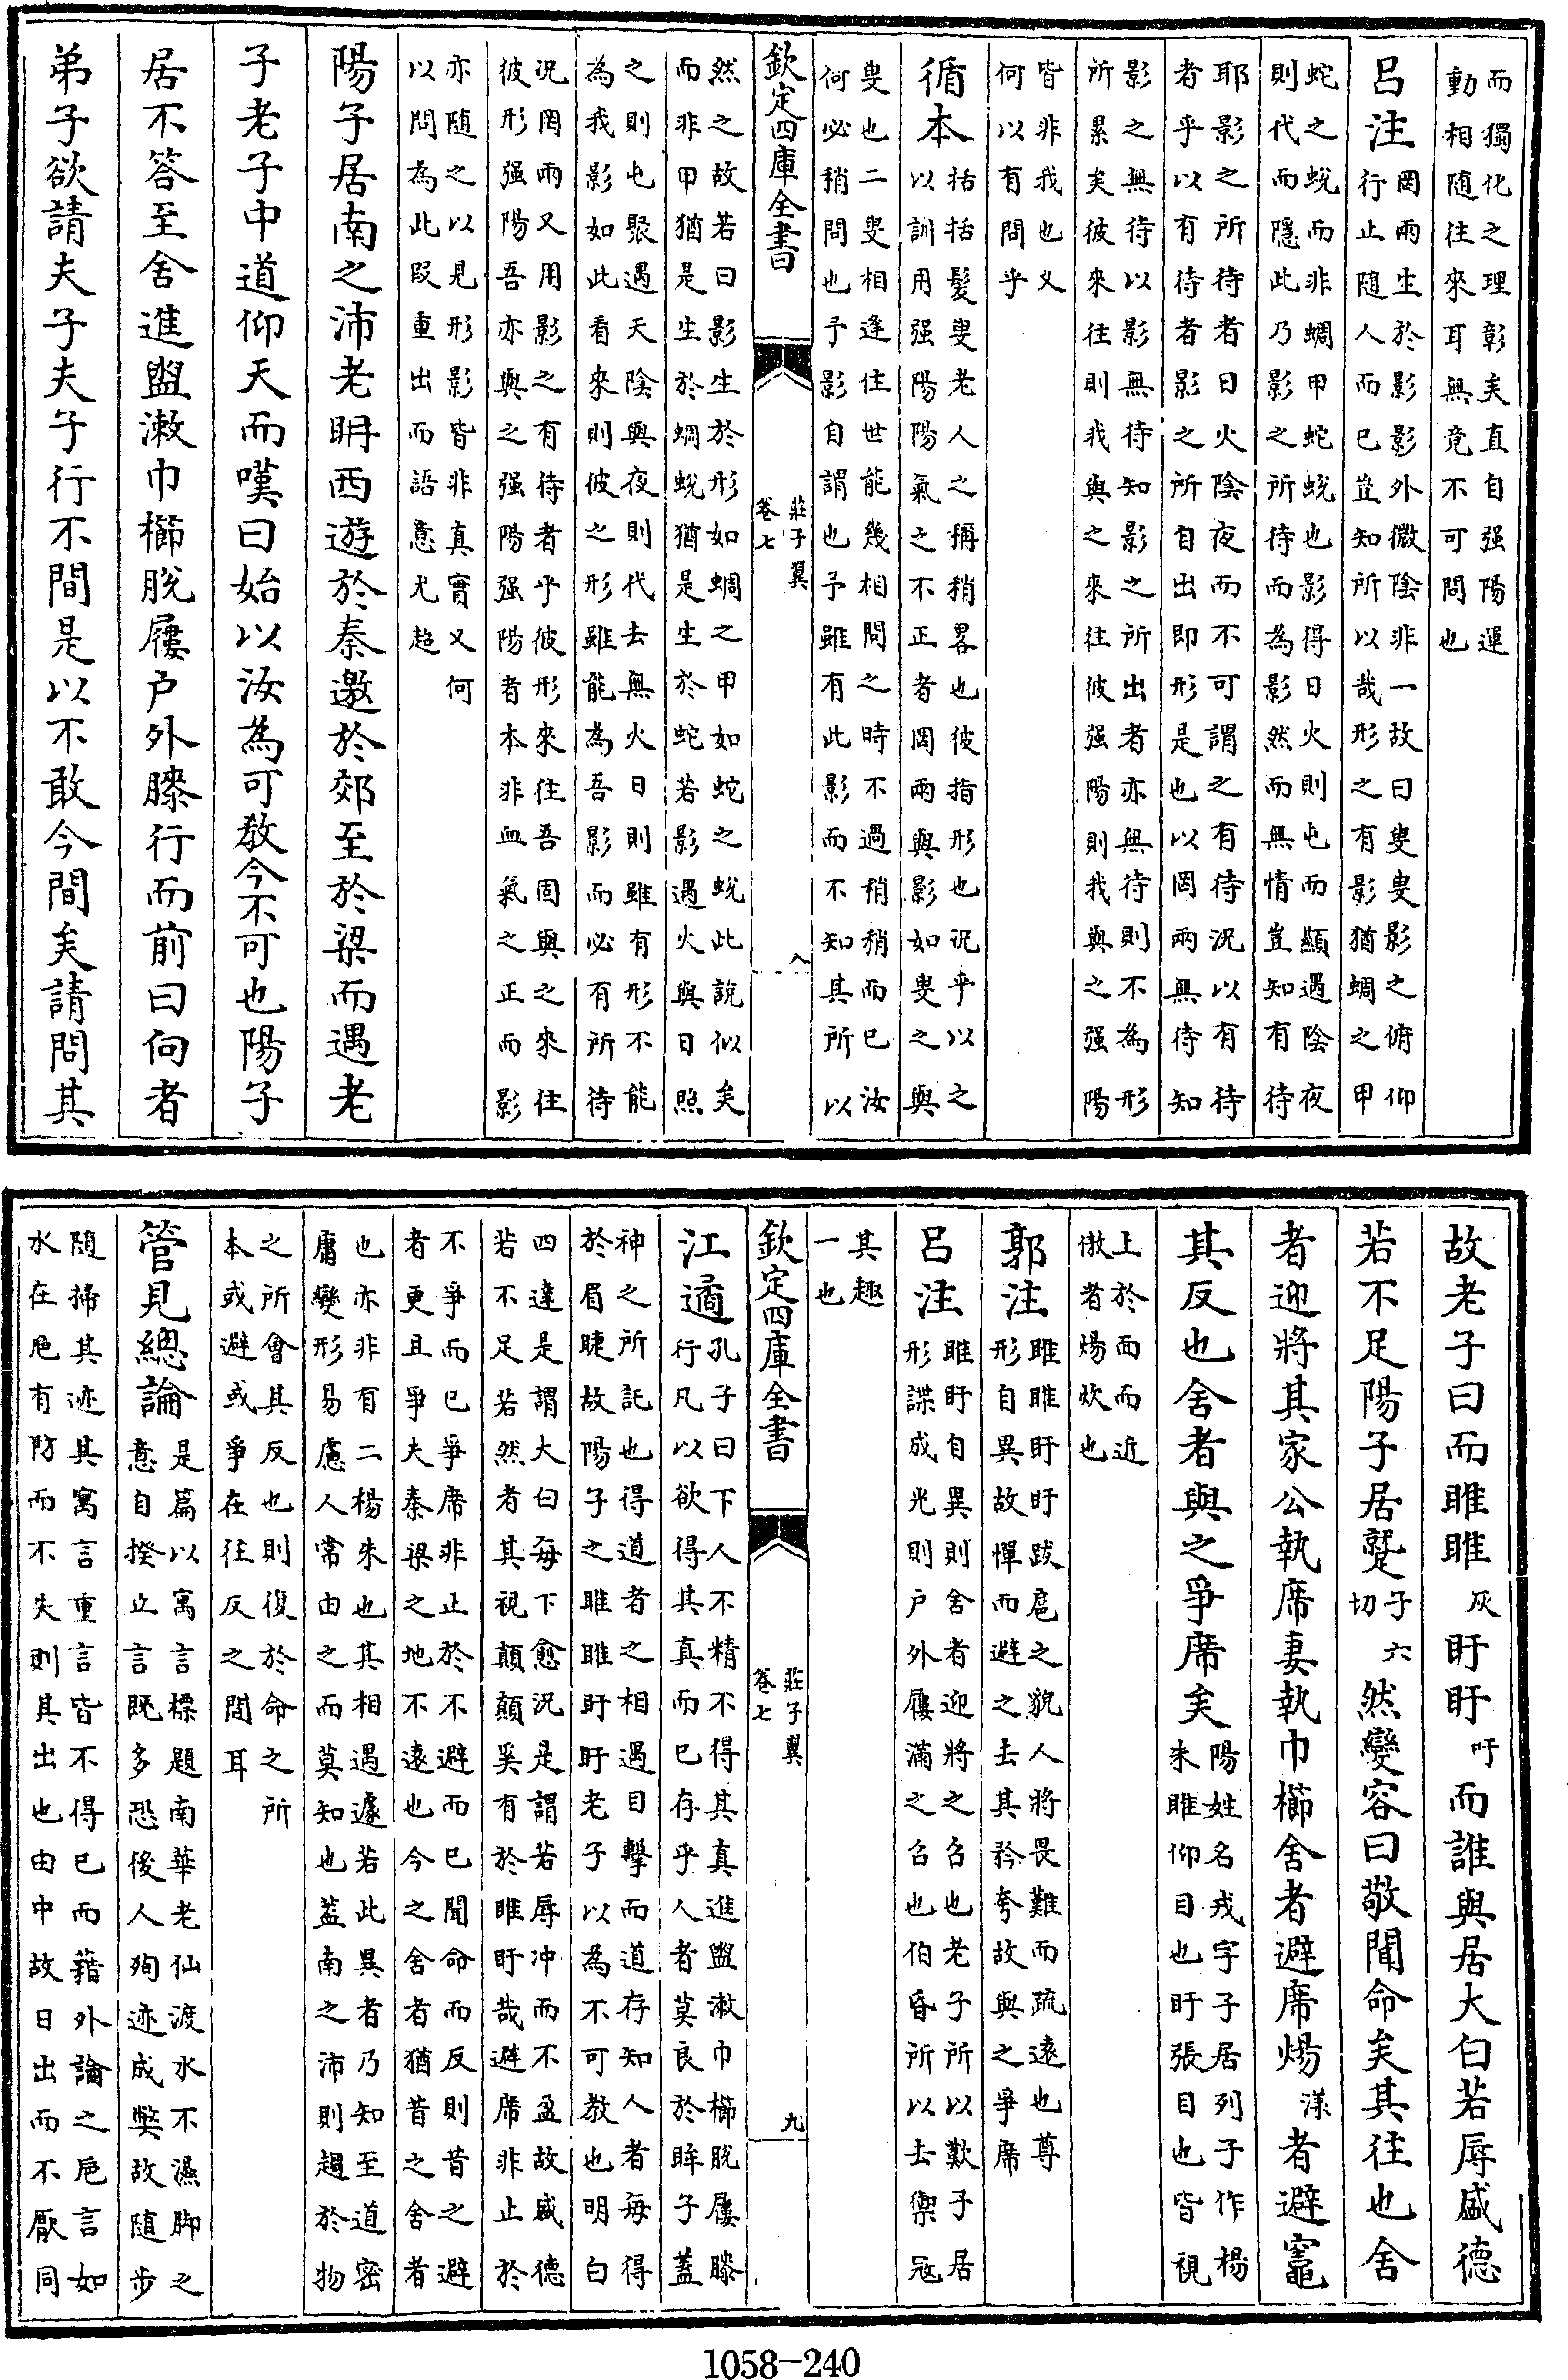 而獨化之理彰矣直自强陽運
動相随往來耳無竟不可問也
吕注罔兩生於影影外微陰非一故曰叟叟影之俯仰
行止随人而已豈知所以哉形之有影猶蜩之甲
蛇之蛻而非蜩甲蛇蛻也影得日火則屯而顯遇陰夜
則代而隱此乃影之所待而為影然而無情豈知有待
耶影之所待者日火陰夜而不可謂之有待況以有待
者乎以有待者影之所自出即形是也以罔兩無待知
影之無待以影無待知影之所出者亦無待則不為形
所累矣彼來往則我與之來往彼强陽則我與之强陽
皆非我也又
何以有問乎
循本括括髪叟老人之稱稍畧也彼指形也況乎以之
以訓用强陽陽氣之不正者罔兩與影如叟之與
叟也二叟相逢住世能幾相問之時不過稍稍而已汝
何必稍問也予影自謂也予雖有此影而不知其所以
欽定四庫全書
莊子翼
卷七
八
然之故若曰影生於形如蜩之甲如蛇之蛻此說似矣
而非甲猶是生於蜩蛻猶是生於蛇若影遇火與日照
之則屯聚遇天陰與夜則代去無火日則雖有形不能
為我影如此看來則彼之形雖能為吾影而必有所待
況罔兩又用影之有待者乎彼形來往吾固與之來往
彼形强陽吾亦與之强陽强陽者本非血氣之正而影
亦随之以見形影皆非真實又何
以問為此叚重出而語意尤超
陽子居南之沛老眀西遊於秦邀於郊至於梁而遇老
子老子中道仰天而嘆曰始以汝為可教今不可也陽子
居不答至舍進盥漱巾櫛脫屨户外膝行而前曰向者
弟子欲請夫子夫子行不間是以不敢今間矣請問其
故老子曰而睢睢灰盱盱吁而誰與居大白若辱盛德
若不足陽子居蹵子六切然變容曰敬聞命矣其往也舍
者迎將其家公執席妻執巾櫛舍者避席煬漾者避竈
其反也舍者與之爭席矣陽姓名戎字子居列子作楊
朱睢仰目也盱張目也皆視
上於面而近
傲者煬炊也
郭注睢睢盱盱跋扈之貌人將畏難而疏遠也尊
形自異故憚而避之去其矜夸故與之爭席
吕注睢盱自異則舍者迎將之名也老子所以歎子居
形諜成光則户外屨滿之名也伯昏所以去禦冦
其趣
一也
欽定四庫全書
莊子翼
卷七
九
江遹孔子曰下人不精不得其真進盥漱巾櫛脫屨膝
行凡以欲得其真而已存乎人者莫良於眸子蓋
神之所託也得道者之相遇目擊而道存知人者每得
於眉睫故陽子之睢睢盱盱老子以為不可教也明白
四達是謂大白每下愈況是謂若辱冲而不盈故盛德
若不足若然者其視顛顛奚有於睢盱哉避席非止於
不爭而已爭席非止於不避而已聞命而反則昔之避
者更且爭夫秦梁之地不遠也今之舍者猶昔之舍者
也亦非有二楊朱也其相遇遽若此異者乃知至道密
庸變形易慮人常由之而莫知也葢南之沛則趨於物
之所會其反也則復於命之所
本或避或爭在往反之間耳
管見總論是篇以寓言標題南華老仙渡水不濕脚之
意自揆立言既多恐後人殉迹成獘故随步
随掃其迹其寓言重言皆不得已而藉外論之巵言如
水在巵有防而不失則其出也由中故曰日出而不厭同
1058-240